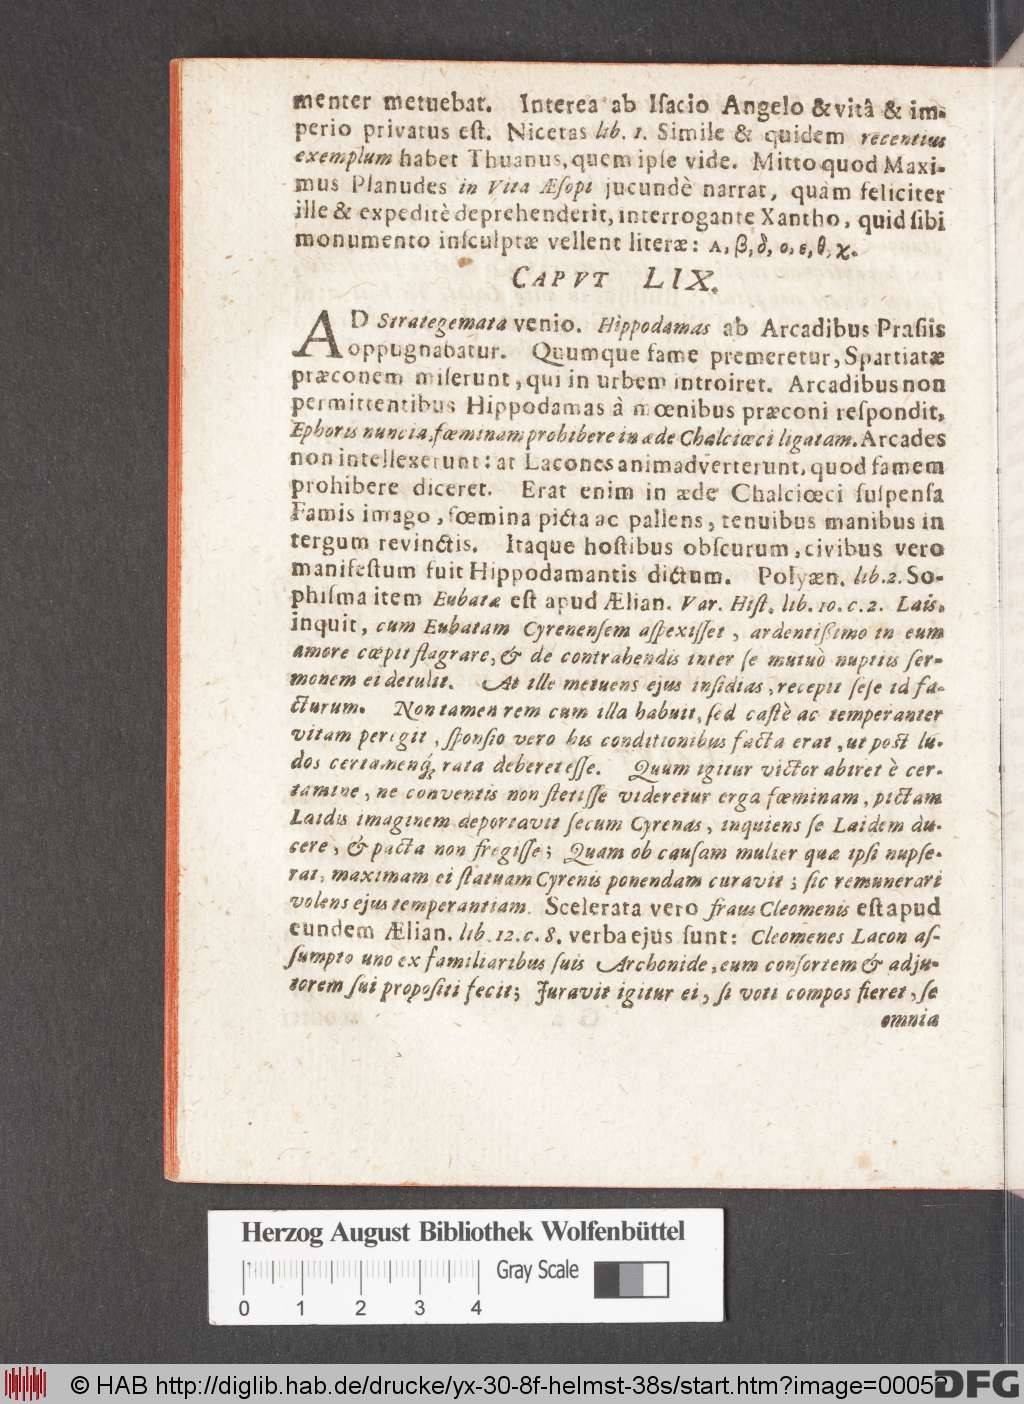 menter metuebat. Interea ab Iſacio Angelo & vitâ & im-
perio privatus eſt. Nicetas lib. 1. Simile & quidem recentius
exemplum habet Thuanus, quem ipſe vide. Mitto quod Maxi-
mus Planudes in Vita Æſopi jucundè narrat, quàm feliciter
ille & expeditè deprehenderit, interrogante Xantho, quid ſibi
monumento inſculptæ vellent literæ: α, β, δ, ο, ε, θ, χ.
CAPVT LIX.
AD Strategemata venio. Hippodamas ab Arcadibus Praſiis
oppugnabatur. Quumque fame premeretur, Spartiatæ
præconem miſerunt, qui in urbem introiret. Arcadibus non
permittentibus Hippodamas à mœnibus præconi reſpondit,
Ephoris nuncia, fœminam prohibere in æde Chalciœci ligatam. Arcades
non intellexerunt: at Lacones animadverterunt, quod famem
prohibere diceret. Erat enim in æde Chalciœci ſuſpenſa
Famis imago, fœmina picta ac pallens, tenuibus manibus in
tergum revinctis. Itaque hoſtibus obſcurum, civibus vero
manifeſtum fuit Hippodamantis dictum. Polyæn. lib. 2. So-
phiſma item Eubatæ eſt apud Ælian. Var. Hiſt. lib. 10. c. 2. Lais,
inquit, cum Eubatam Cyrenenſem aſpexiſſet, ardentiſſimo in eum
amore cœpit flagrare, & de contrahendis inter ſe mutuò nuptiis ſer-
monem ei detulit. At ille metuens ejus inſidias, recepit ſeſe id fa-
cturum. Non tamen rem cum illa habuit, ſed caſtè ac temperanter
vitam peregit, ſponſio vero his conditionibus facta erat, ut poſt lu-
dos certamenq; rata deberet eſſe. Quum igitur victor abiret è cer-
tamine, ne conventis non ſtetiſſe videretur erga fœminam, pictam
Laidis imaginem deportavit ſecum Cyrenas, inquiens ſe Laidem du-
cere, & pacta non fregiſſe; Quam ob cauſam mulier quæ ipſi nupſe-
rat, maximam ei ſtatuam Cyrenis ponendam curavit; ſic remunerari
volens ejus temperantiam. Scelerata vero fraus Cleomenis eſt apud
eundem Ælian. lib. 12. c. 8. verba ejus ſunt: Cleomenes Lacon aſ-
ſumpto uno ex familiaribus ſuis Archonide, eum conſortem & adju-
torem ſui propoſiti fecit; Juravit igitur ei, ſi voti compos fieret, ſe
omnia
Herzog August Bibliothek Wolfenbüttel
Gray Scale
0 1 2 3 4
© HAB http://diglib.hab.de/drucke/yx-30-8f-helmst-38s/start.htm?image=00052
DFG